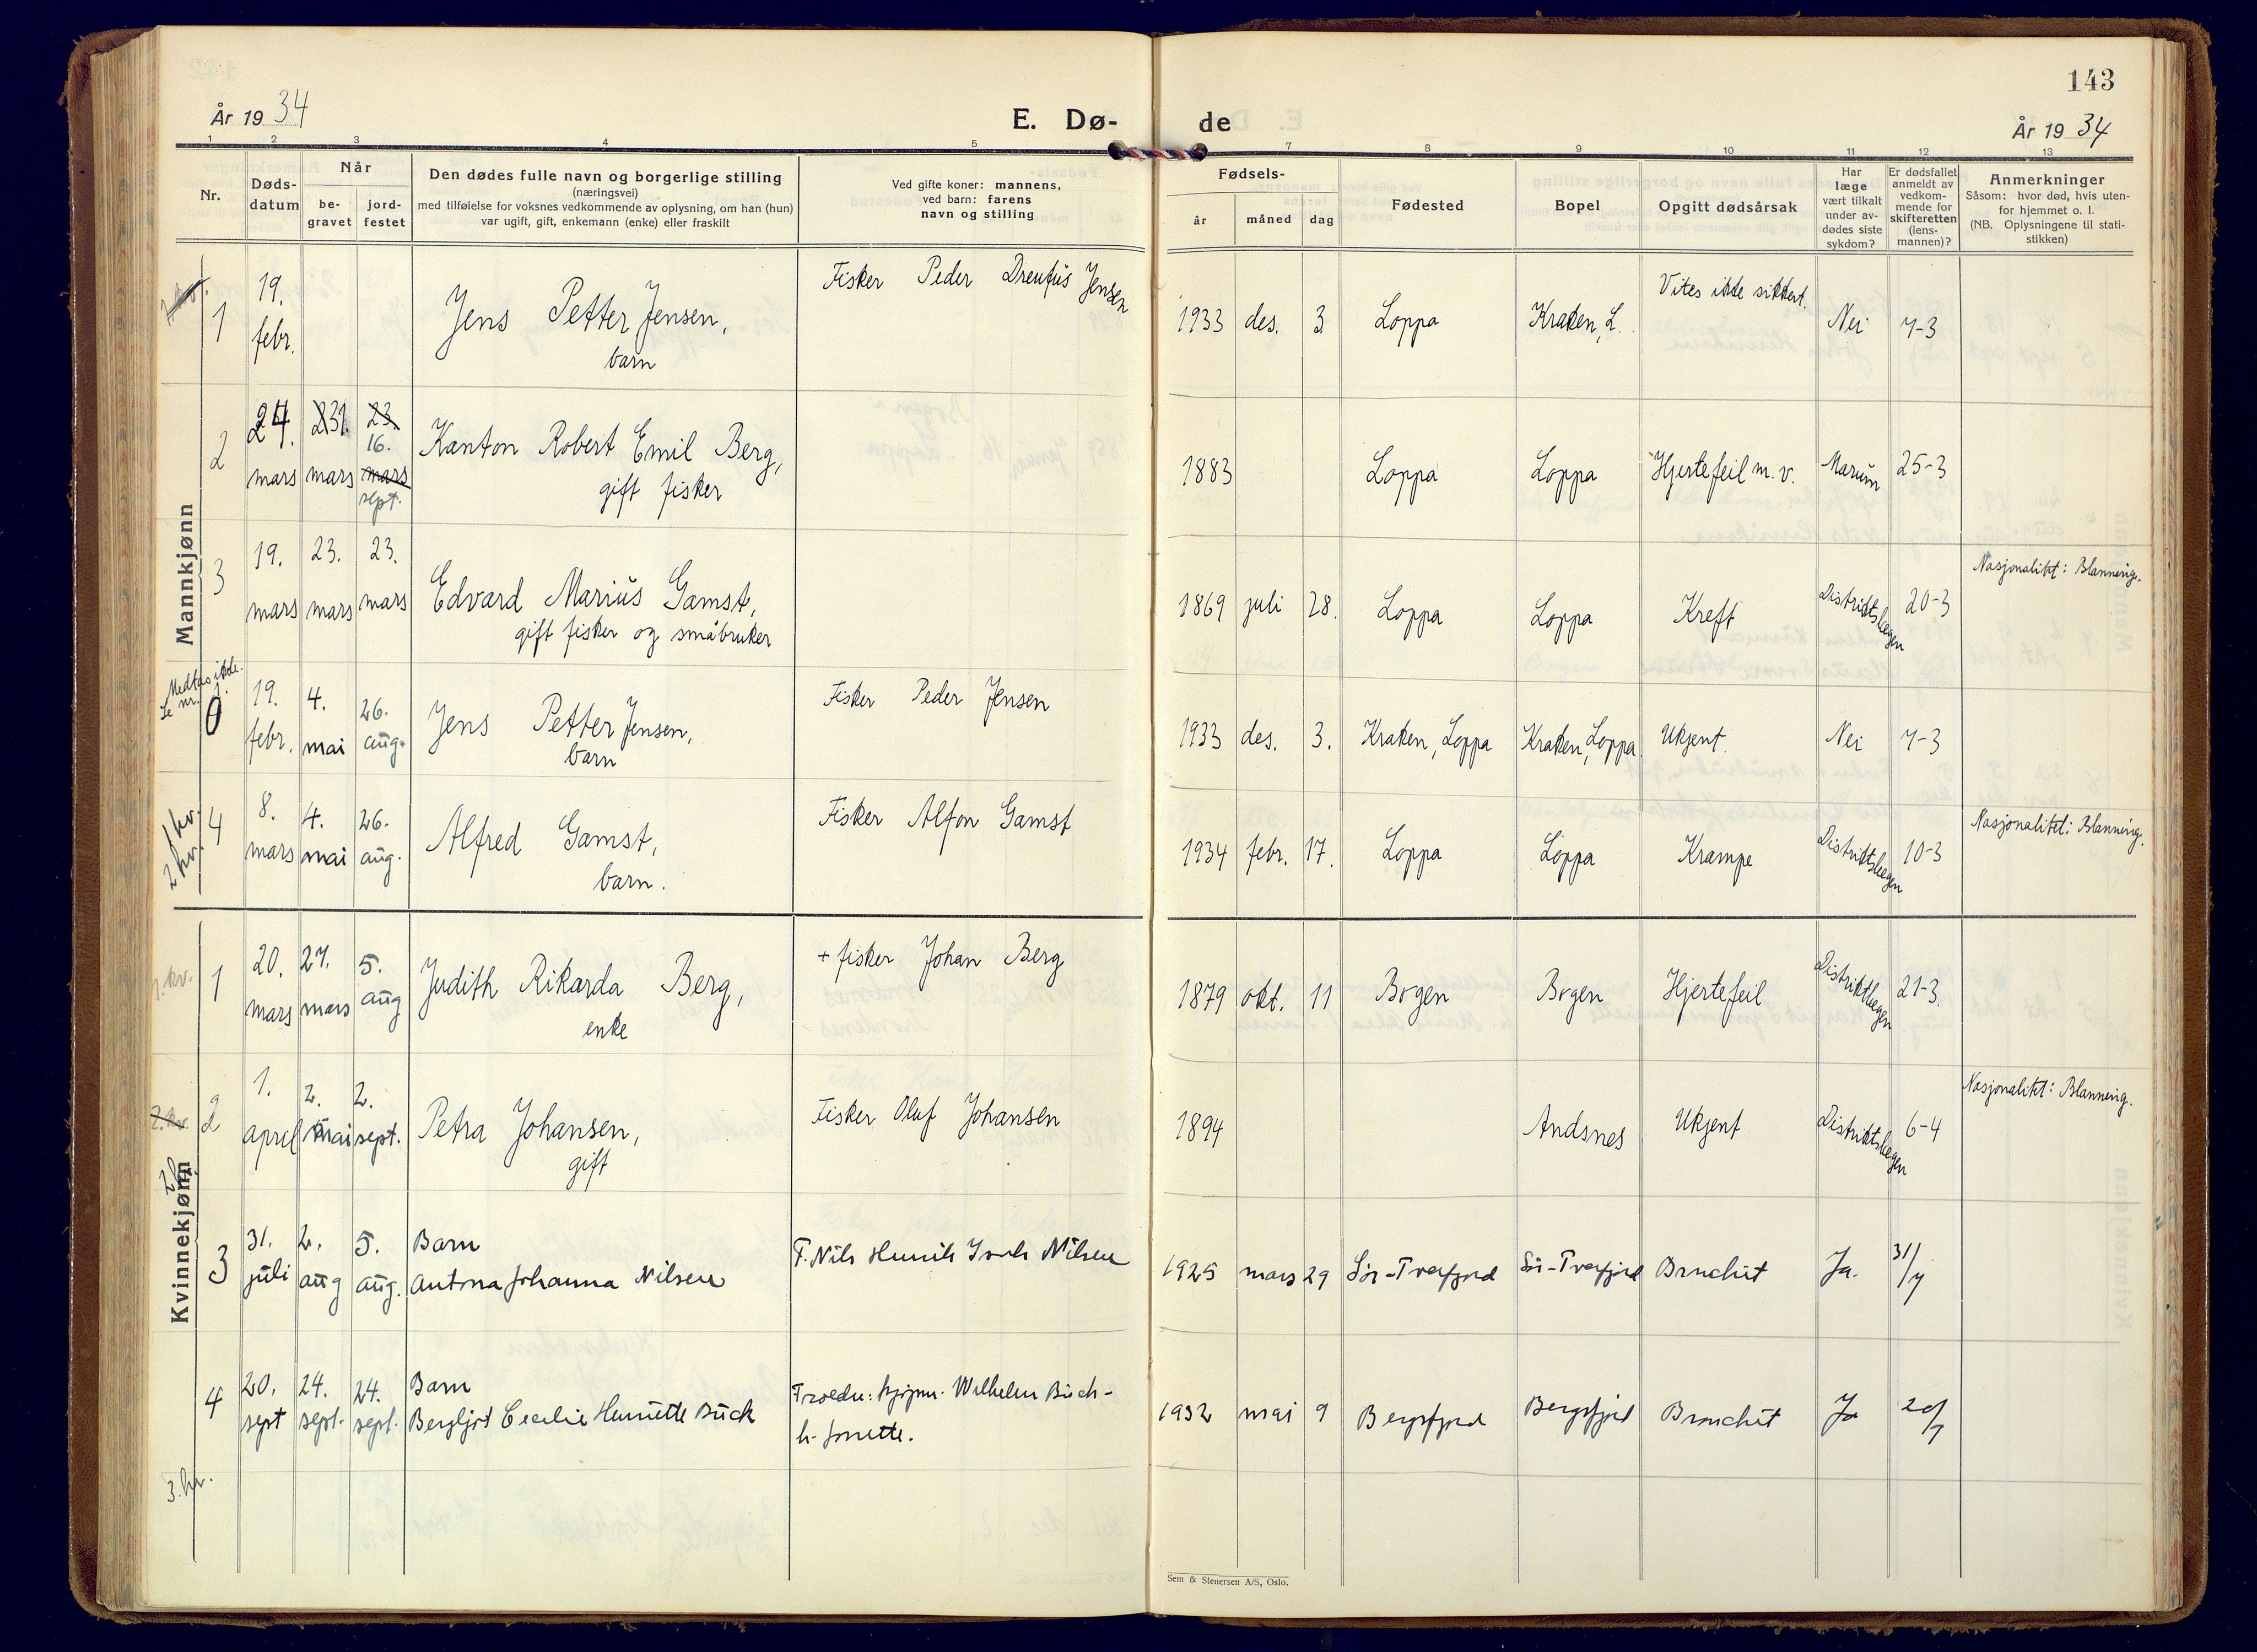 143
År 1934
E. Dø- de
År 1934
1 2 3 4 5 7 8 9 10 11 12 13
Nr.
Døds-
datum
Når
be-
gravet
jord-
festet
Den dødes fulle navn og borgerlige stilling
(næringsvei)
med tilføielse for voksnes vedkommende av oplysning, om han (hun)
var ugift, gift, enkemann (enke) eller fraskilt
Ved gifte koner: mannens,
ved barn: farens
navn og stilling
Fødsels-
år måned dag
Fødested
Bopel
Opgitt dødsårsak
Har
læge
vært tilkalt
under av-
dødes siste
sykdom?
Er dødsfallet
anmeldt av
vedkom-
mende for
skifteretten
(lens-
mannen)?
Anmerkninger
Såsom: hvor død, hvis uten-
for hjemmet o. l.
(NB. Oplysningene til stati-
stikken)
Mannkjønn
1
19.
febr.
Jens Petter Jensen,
barn
Fisker Peder Dreufus Jensen
1933 des. 3 Loppa Kraken, L.
Vites ikke sikkert.
Nei 7-3
2
24.
mars
31.
mars
23.
16.
mars
sept.
Kanton Robert Emil Berg,
gift fisker
1883 Loppa Loppa Hjertefeil m. v. Marum 25-3
3
19.
mars
23.
mars
23.
mars
Edvard Marius Gamst,
gift fisker og småbruker
1869 juli 28. Loppa Loppa Kreft Distriktslægen 20-3
Nasjonalitet: Blanning.
Medtas ikke.
Se nr. 1.
0
19.
febr.
4.
mai
26.
aug.
Jens Petter Jensen,
barn
Fisker Peder Jensen
1933 des. 3. Kraken, Loppa Kraken, Loppa Ukjent. Nei 7-3
1 kv.
2 kv.
4
8.
mars
4.
mai
26.
aug.
Alfred Gamst,
barn.
Fisker Alfon Gamst
1934 febr. 17. Loppa Loppa Krampe Distriktslægen 10-3
Nasjonalitet: Blanning.
Kvinnekjønn
1. kv.
1
20.
mars
27.
mars
5.
aug
Judith Rikarda Berg,
enke
+ fisker Johan Berg
1879 okt. 11 Bogen Bogen Hjertefeil Distriktlægen 21-3.
2. kv.
2
1.
april
2.
mai
2.
sept.
Petra Johansen,
gift
Fisker Oluf Johansen
1894 Andsnes Ukjent Distriktslægen 6-4
Nasjonalitet: Blanning.
3
31.
juli
2.
aug
5.
aug.
Barn
Antona Johanna Nilsen
F. Nils Henrik Nilsen
1925 mars 29 Sør-Tverfjord Sør-Tverfjord Bronchit Ja. 31/7
4
20.
sept
24.
sept.
24.
sept.
Barn
Bergljot Cecilie Henriette Buck
Wilhelm Buch-
1932 mai 9 Bergsfjord Bergsfjord Bronchit Ja
3. kv.
Sem & Stenersen A/S, Oslo.